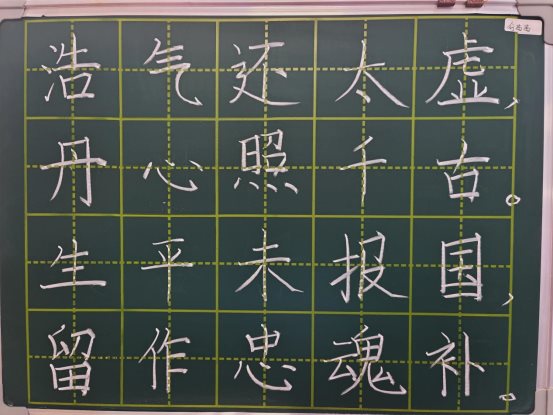 浩气还太虚，
丹心照千古。
生平未报国，
留作忠魂补。